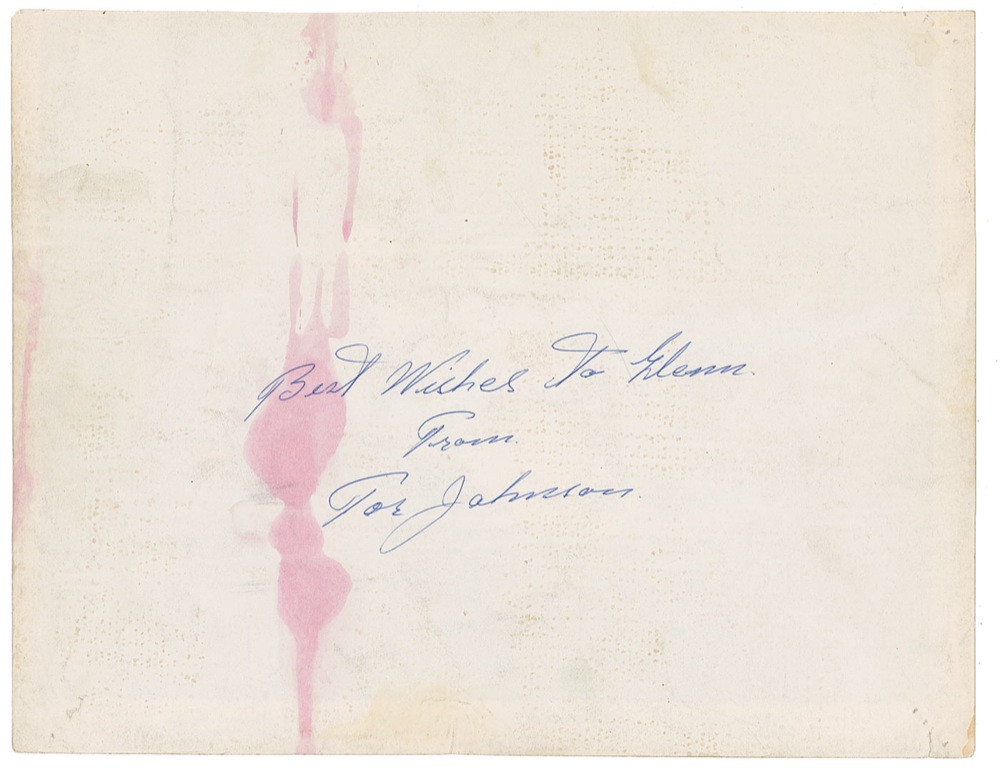 Best Wishes To Glenn.
From.
Tor Johnson.